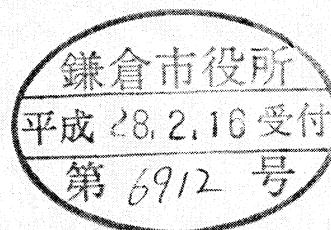 鎌倉市役所
平成 28.2.16 受付
第 6912 号